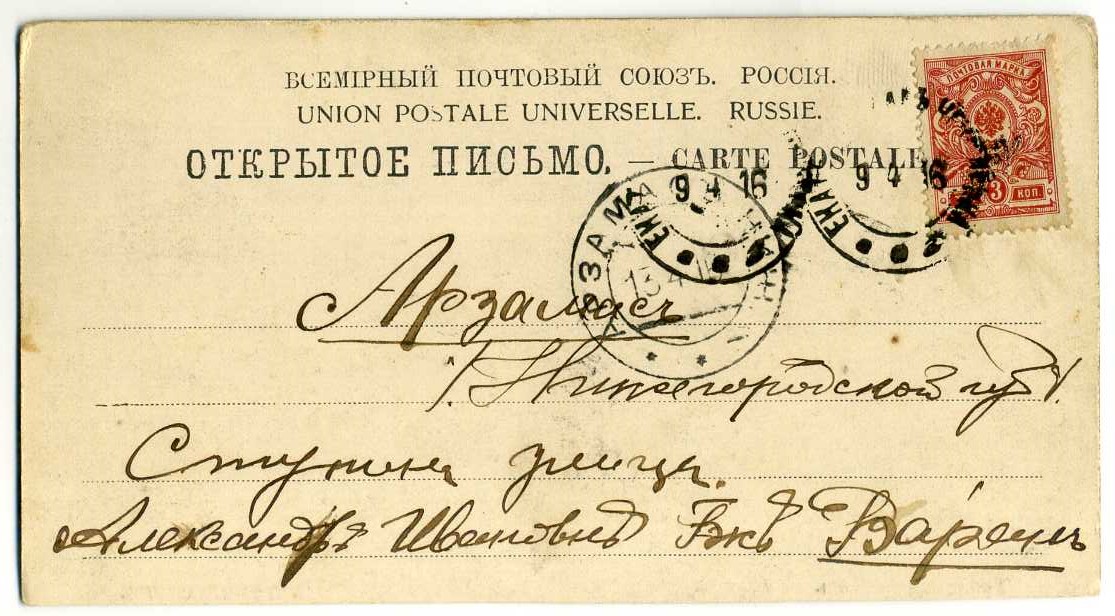 ВСЕМIРНЫЙ ПОЧТОВЫЙ СОЮЗЪ. РОССIЯ.
UNION POSTALE UNIVERSELLE. RUSSIE.
ОТКРЫТОЕ ПИСЬМО. — CARTE POSTALE
ПОЧТОВАЯ МАРКА
3 КОП.
9 4 16
9 4 16
Арзамасъ
Нижегородской губ.
Ступина улица.
Александрѣ Ивановнѣ